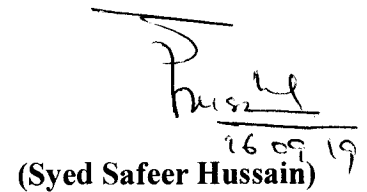 16 09 19
(Syed Safeer Hussain)